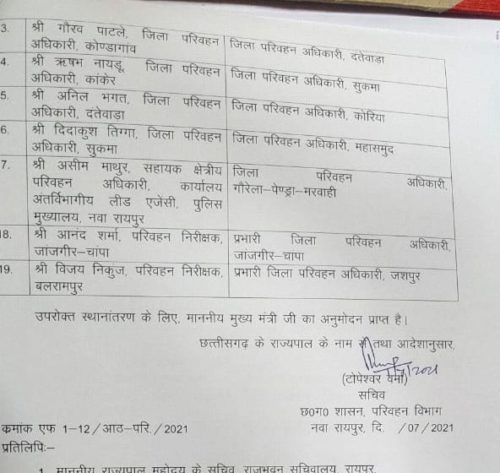 3. श्री गौरव पाटले, जिला परिवहन जिला परिवहन अधिकारी, दतेवाड़ा
अधिकारी, कोण्डागांव
4. श्री ऋषभ नायडू, जिला परिवहन जिला परिवहन अधिकारी, सुकमा
अधिकारी, कांकेर
5. श्री अनिल भगत, जिला परिवहन जिला परिवहन अधिकारी, कोरिया
अधिकारी, दतेवाड़ा
6. श्री दिदाकुश तिग्गा, जिला परिवहन जिला परिवहन अधिकारी, महासमुद
अधिकारी, सुकमा
7. श्री असीम माथुर, सहायक क्षेत्रीय जिला परिवहन अधिकारी,
परिवहन अधिकारी, कार्यालय गौरेला–पेण्ड्रा–मरवाही
अंतर्विभागीय लीड एजेंसी, पुलिस
मुख्यालय, नवा रायपुर
18. श्री आनंद शर्मा, परिवहन निरीक्षक, प्रभारी जिला परिवहन अधिकारी,
जांजगीर–चांपा जाजगीर–चापा
19. श्री विजय निकुंज, परिवहन निरीक्षक, प्रभारी जिला परिवहन अधिकारी, जशपुर
बलरामपुर
उपरोक्त स्थानांतरण के लिए, माननीय मुख्य मंत्री जी का अनुमोदन प्राप्त है।
छत्तीसगढ़ के राज्यपाल के नाम से तथा आदेशानुसार,
(टोपेश्वर वर्मा)
सचिव
छ०ग० शासन, परिवहन विभाग
क्रमांक एफ 1–12 / आठ–परि. / 2021 नवा रायपुर, दि. /07/2021
प्रतिलिपिः–
1. माननीय राज्यपाल महोदय के सचिव, राजभवन सचिवालय, रायपुर